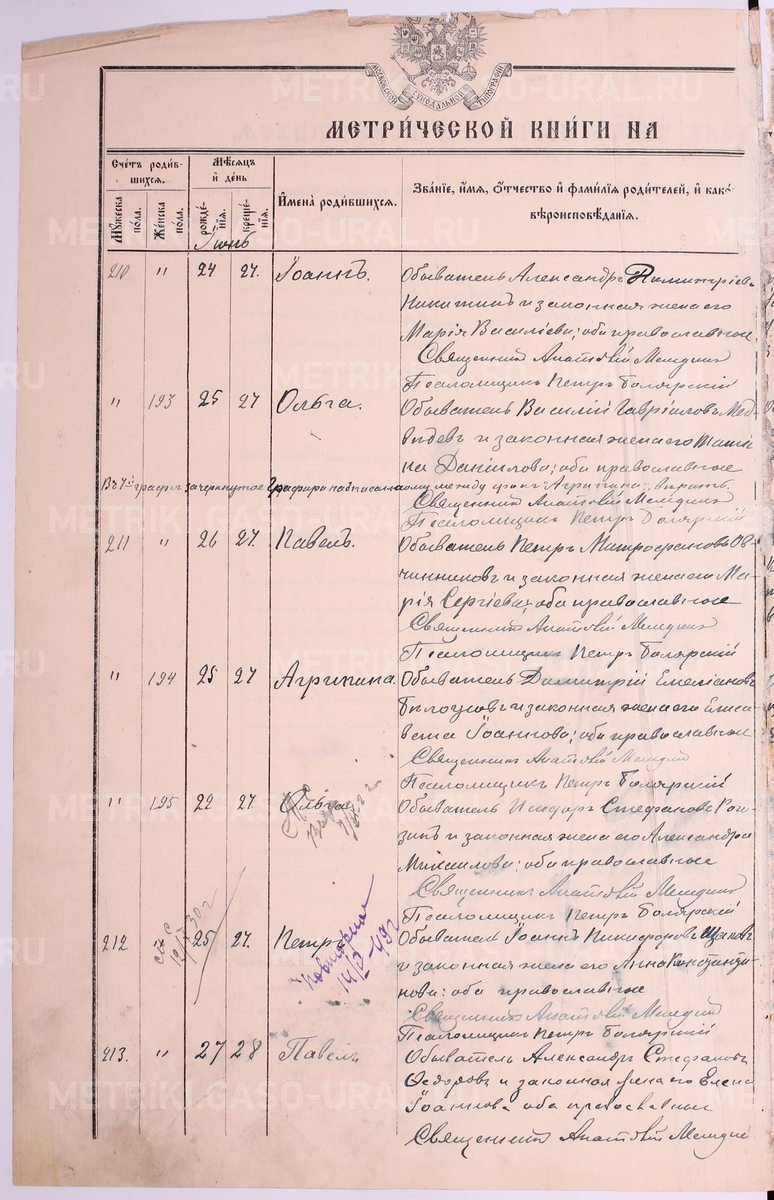 МОСКОВСКОЙ СѴНОДАЛЬНОЙ ТИПОГРАФІИ
МЕТРИ́ЧЕСКОЙ КНИ́ГИ НА
Счетъ роди́вшихся.
Мѣсяцъ и́ день
И҆мена̀ роди́вшихся.
Зва́нїе, и҆́мя, ѻ҆́тчество и҆ фами́лїя роди́телей, и҆ како́
вѣроисповѣ́данїя.
Мꙋжеска пола.
Женска пола.
рожде́нїя.
креще́нїя.
Іюнь
210 " 24 27. Іоаннъ. Обыватель Александръ Димитріевъ
Никитинъ и законная жена его
Марія Василіева; оба православные
Священникъ Анатолій
Псаломщикъ Петръ Боярскій
" 193 25 27 Ольга. Обыватель Василій Гавріиловъ Мед-
вѣдевъ и законная жена его Татіа-
на Даніилова; оба православные
зачеркнутое "Агрипина" вѣрить.
Священникъ Анатолій
Псаломщикъ Петръ Боярскій
211 " 26 27. Павелъ. Обыватель Петръ Митрофановъ Ов-
чинниковъ и законная жена его Ма-
рія Сергіева; оба православные
Священникъ Анатолій
Псаломщикъ Петръ Боярскій
" 194 25 27 Агрипина. Обыватель Димитрій Емеліановъ
Бѣлоусовъ и законная жена его Елиса-
вета Іоаннова; оба православные
Священникъ Анатолій
Псаломщикъ Петръ Боярскій
" 195 22 27 Ольга. Обыватель Исидоръ Стефановъ
и законная жена его Александра
Михаилова; оба православные
Священникъ Анатолій
Псаломщикъ Петръ Боярскій
212 " 25 27. Петръ Обыватель Іоаннъ Никифоровъ
и законная жена его Анна Константи-
нова; оба православные
Повторно
Священникъ Анатолій
Псаломщикъ Петръ Боярскій
213. " 27 28 Павелъ Обыватель Александръ Стефановъ
Ѳедоровъ и законная жена его Елена
Іоаннова оба православные
Священникъ Анатолій
METRIKI.GASO-URAL.RU